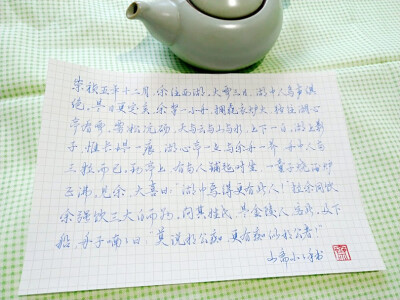 崇祯五年十二月,余住西湖,大雪三日,湖中人鸟声俱
绝,是日更定矣,余挐一小舟,拥毳衣炉火,独往湖心
亭看雪,雾凇沆砀,天与云与山与水,上下一白,湖上影
子,惟长堤一痕,湖心亭一点与余舟一芥,舟中人两
三粒而已,到亭上,有两人铺毡对坐,一童子烧酒炉
正沸,见余,大喜曰:"湖中焉得更有此人!"拉余同饮
余强饮三大白而别,问其姓氏,是金陵人,客此,及下
船,舟子喃喃曰:"莫说相公痴,更有痴似相公者!"
山斋小